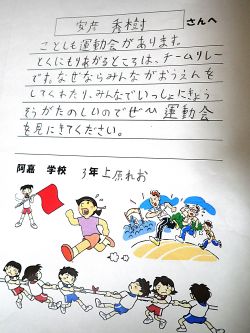 安彦 秀樹 さんへ
ことしも運動会があります。
とくにもりあがるところは、チームリレー
です。なぜならみんながおうえんを
してくれたり、みんなでいっしょにきょう
そうがたのしいのでぜひ運動会
を見にきてください。
阿嘉 学校 3年上原れお